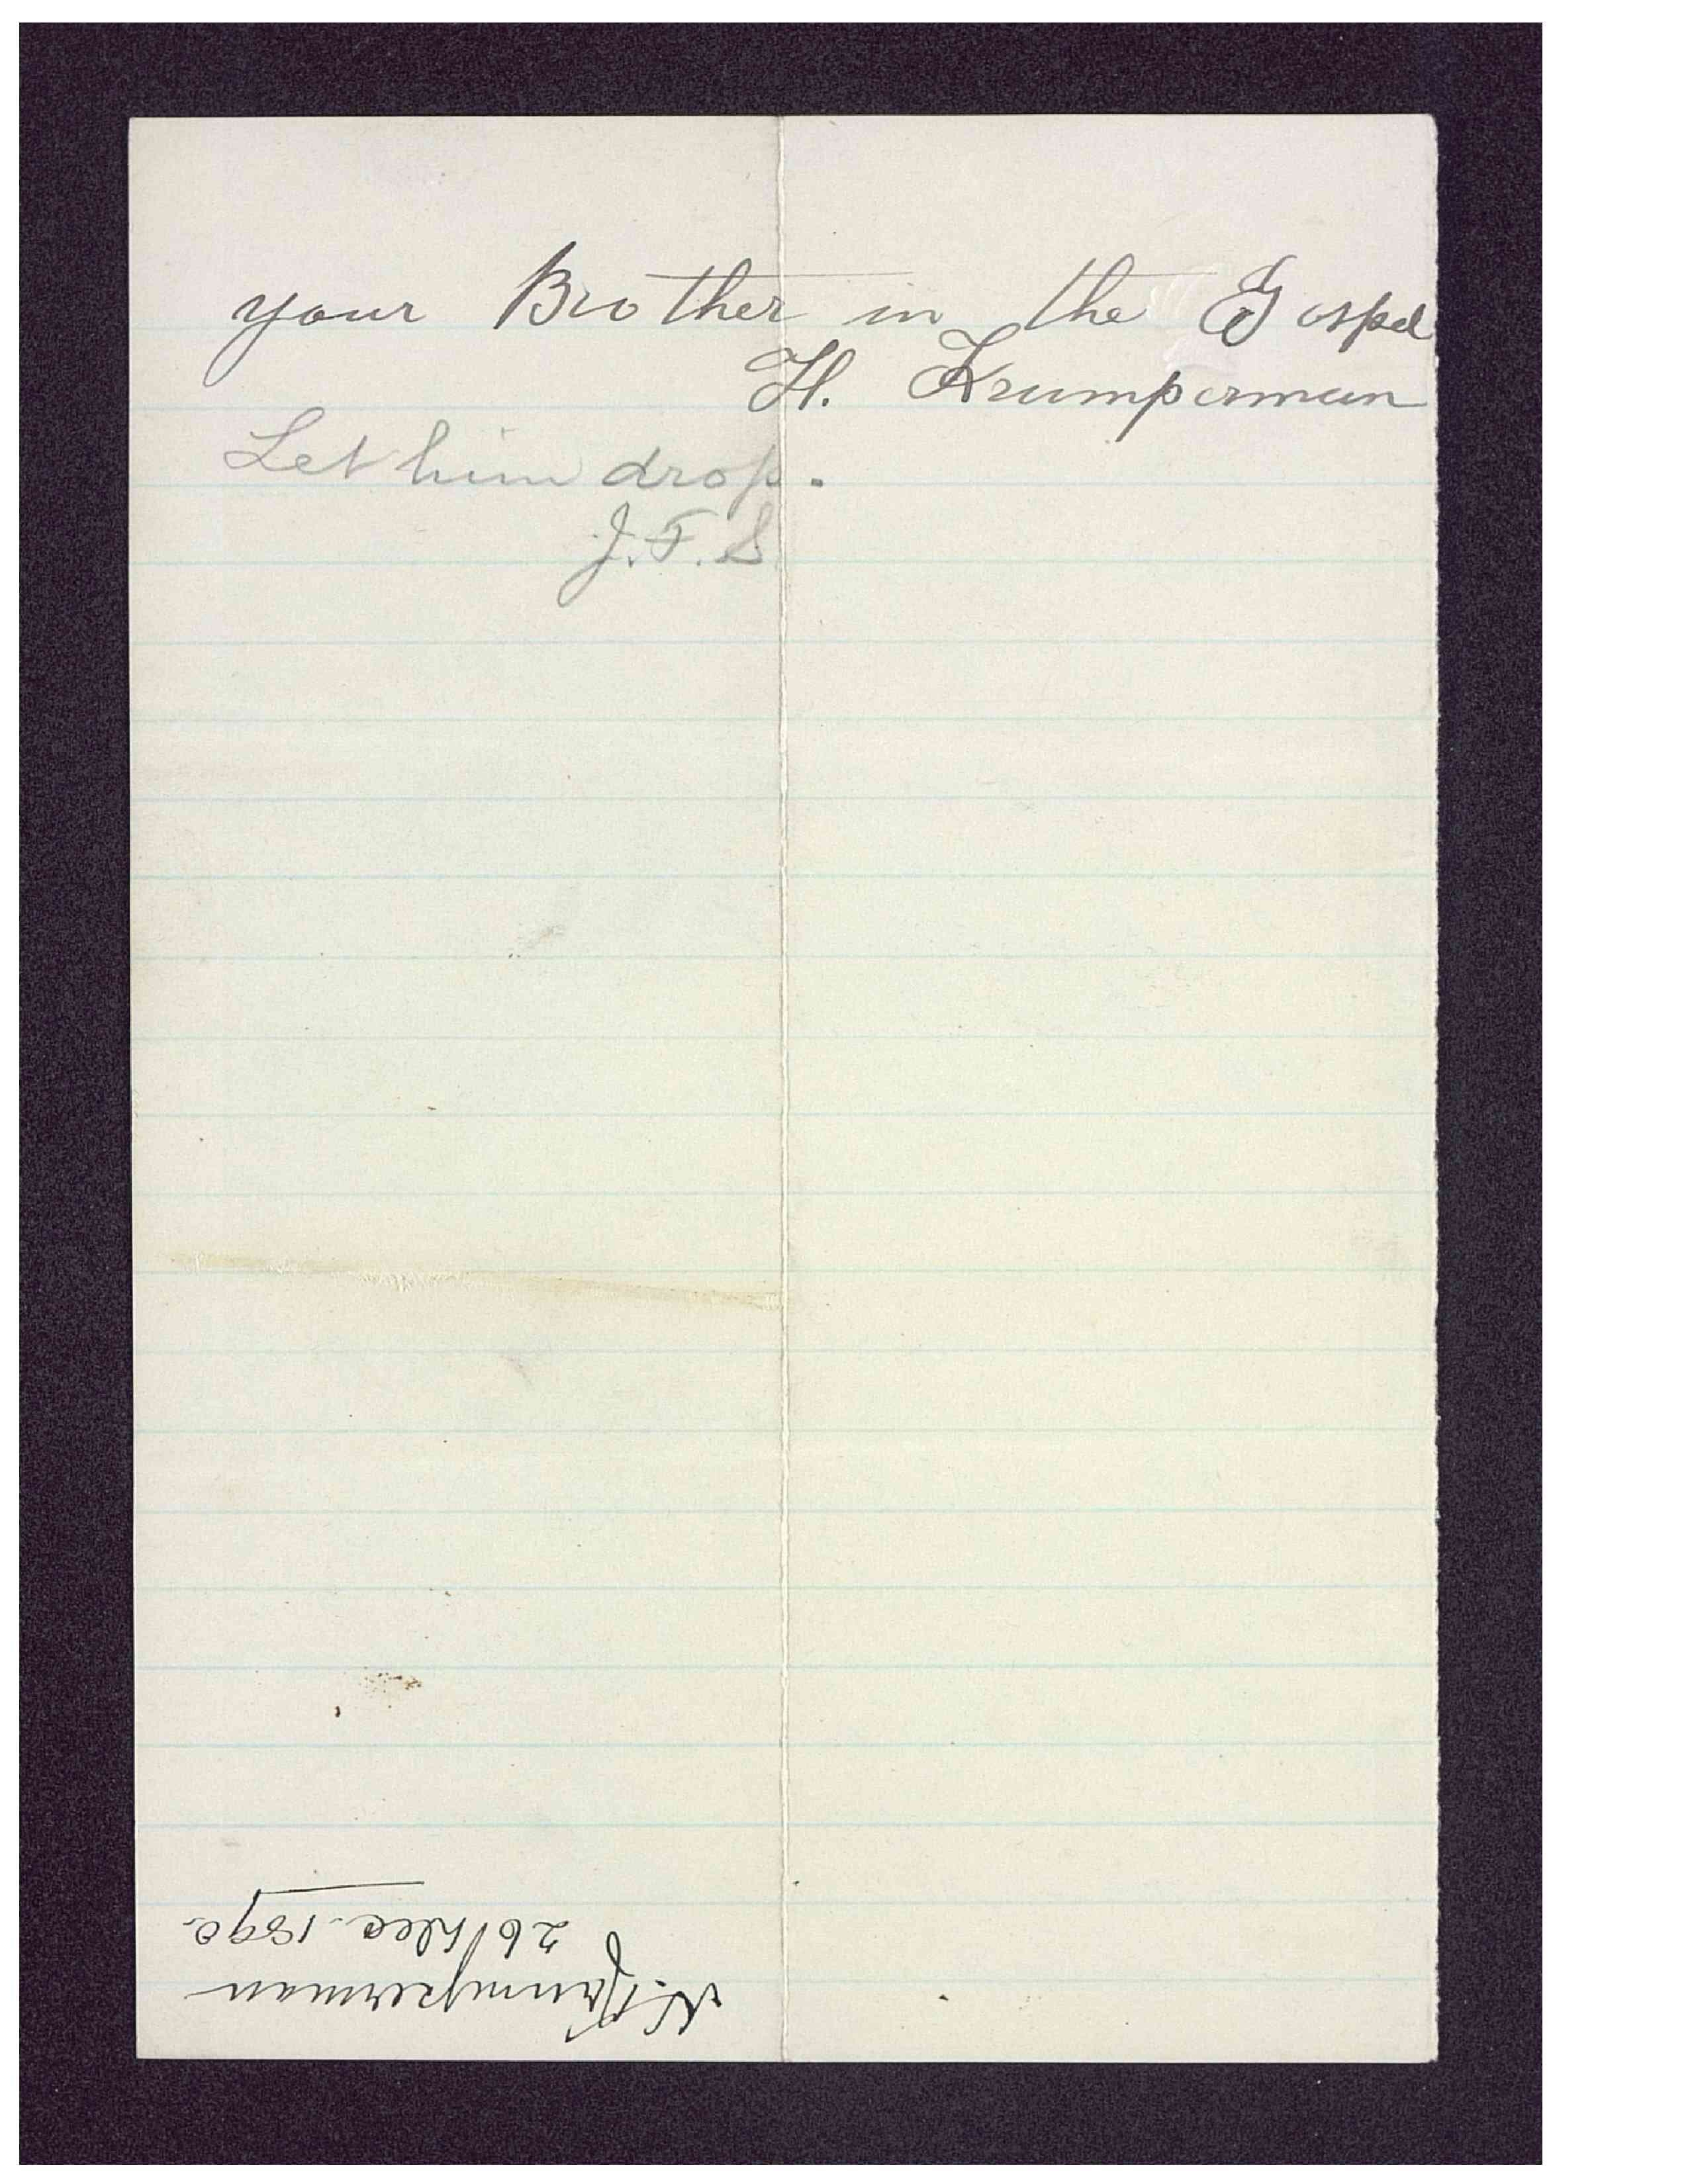 your Brother in the Gospel
H. Krumperman
Let him drop.
J.F.S
H. Krumperman
26 Dec. 1890